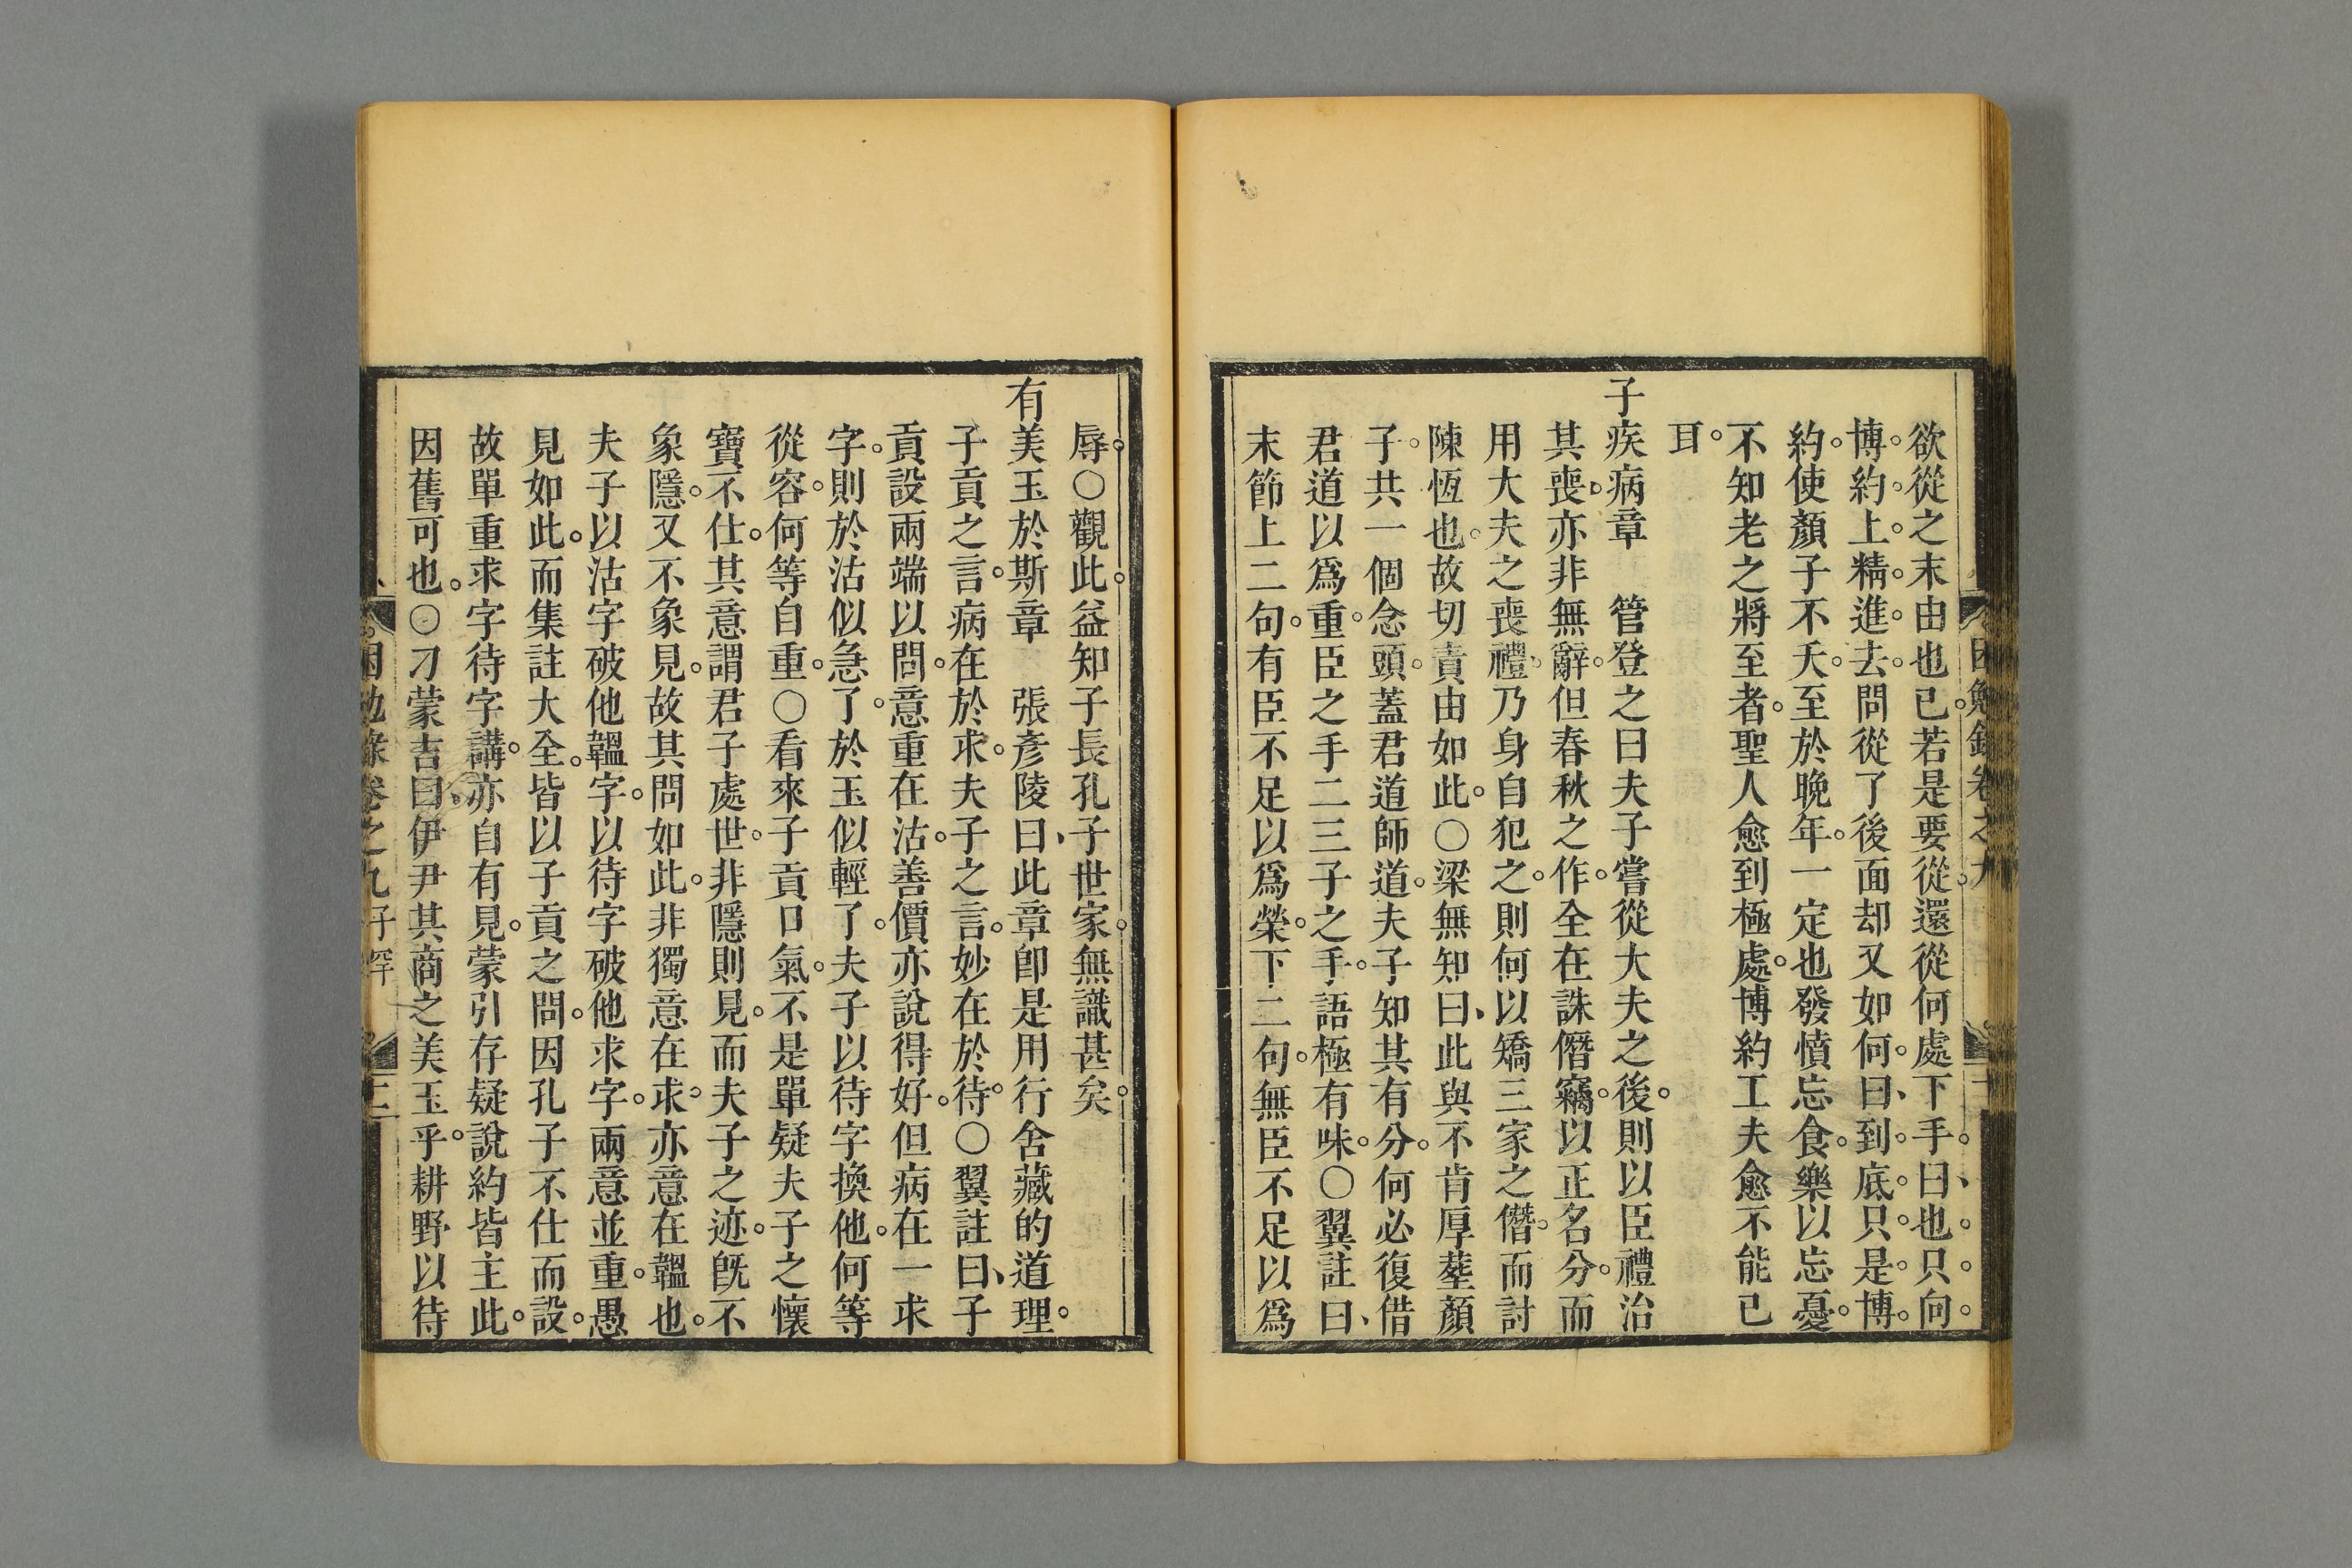 欲從之末由也已。若是要從。還從何處下手。曰、也。只。向。
博。約。上。精。進。去。問從了後面却又如何。曰、到。底。只。是。博。
約。使顏子不夭。至於晚年。一定也發憤忘食。樂以忘憂。
不知老之將至者。聖人愈到極處。博約工夫愈不能已
耳。
子疾病章　管登之曰夫子嘗從大夫之後。則以臣禮治
其喪。亦非無辭。但春秋之作。全在誅僭竊。以正名分。而
用大夫之喪禮。乃身自犯之。則何以矯三家之僭。而討
陳恆也。故切責由如此。○梁無知曰、此與不肯厚塟顏
子。共一個念頭。蓋君道師道。夫子知其有分。何必復借
君道以爲重。臣之手二三子之手。語極有味。○翼註曰、
末節上二句。有臣不足以爲榮。下二句。無臣不足以爲
困勉錄卷之九
辱。○觀此。益知子長孔子世家。無識甚矣。
有美玉於斯章　張彥陵曰、此章卽是用行舍藏的道理。
子貢之言。病在於求。夫子之言。妙在於待。○翼註曰、子
貢設兩端以問。意重在沽。善價亦說得好。但病在一求
字。則於沽似急了。於玉似輕了。夫子以待字換他。何等
從容。何等自重。○看來子貢口氣。不是單疑夫子之懷
寶不仕。其意謂君子處世。非隱則見。而夫子之迹。旣不
象隱。又不象見。故其問如此。非獨意在求。亦意在韞也。
夫子以沽字破他韞字。以待字破他求字。兩意並重。愚
見如此。而集註大全。皆以子貢之問。因孔子不仕而設。
故單重求字待字講。亦自有見。蒙引存疑說約皆主此。
因舊可也。○刁蒙吉曰、伊尹其商之美玉乎。耕野以待
困勉錄卷之九 子罕